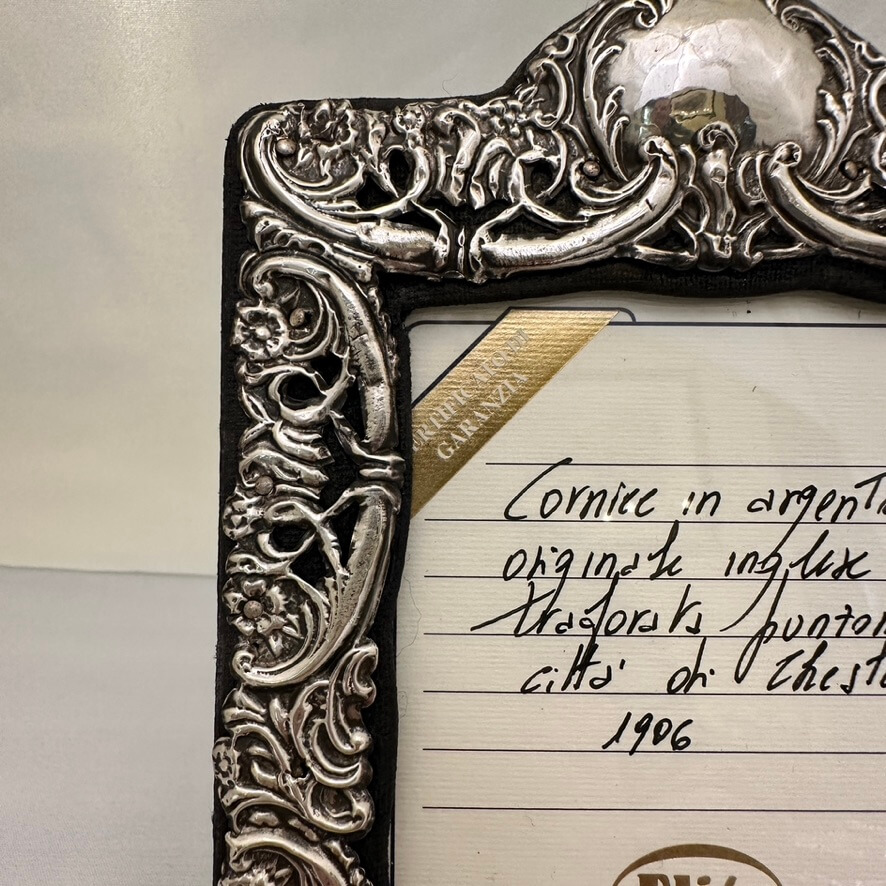 CERTIFICATO DI
GARANZIA
Cornice in argent
originale inglese
traforata punzon
città di Chest
1906
Elit